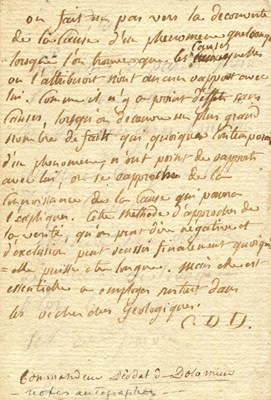 on fait un pas vers la decouverte
de la cause d'un phenomene quelconque
lorsque l'on trouve que les causes auxquelles
on l'attribuoit n'ont aucun rapport avec
lui. Comme il n'y a point d'effets sans
causes, lorsqu'on decouvre un plus grand
nombre de faits qui, quoique contemporains
d'un phenomene, n'ont point de rapports
avec lui, on se rapproche de la
connoissance de la cause qui pourra
l'expliquer. Cette methode d'approcher de
la verité, qu'on peut dire negative et
d'exclusion peut reussir finalement quoiqu'
=elle puisse etre longue. mais elle est
essentielle a employer surtout dans
les recherches geologiques.
C. D. D.
Commandeur Déodat de Dolomieu
notes autographes